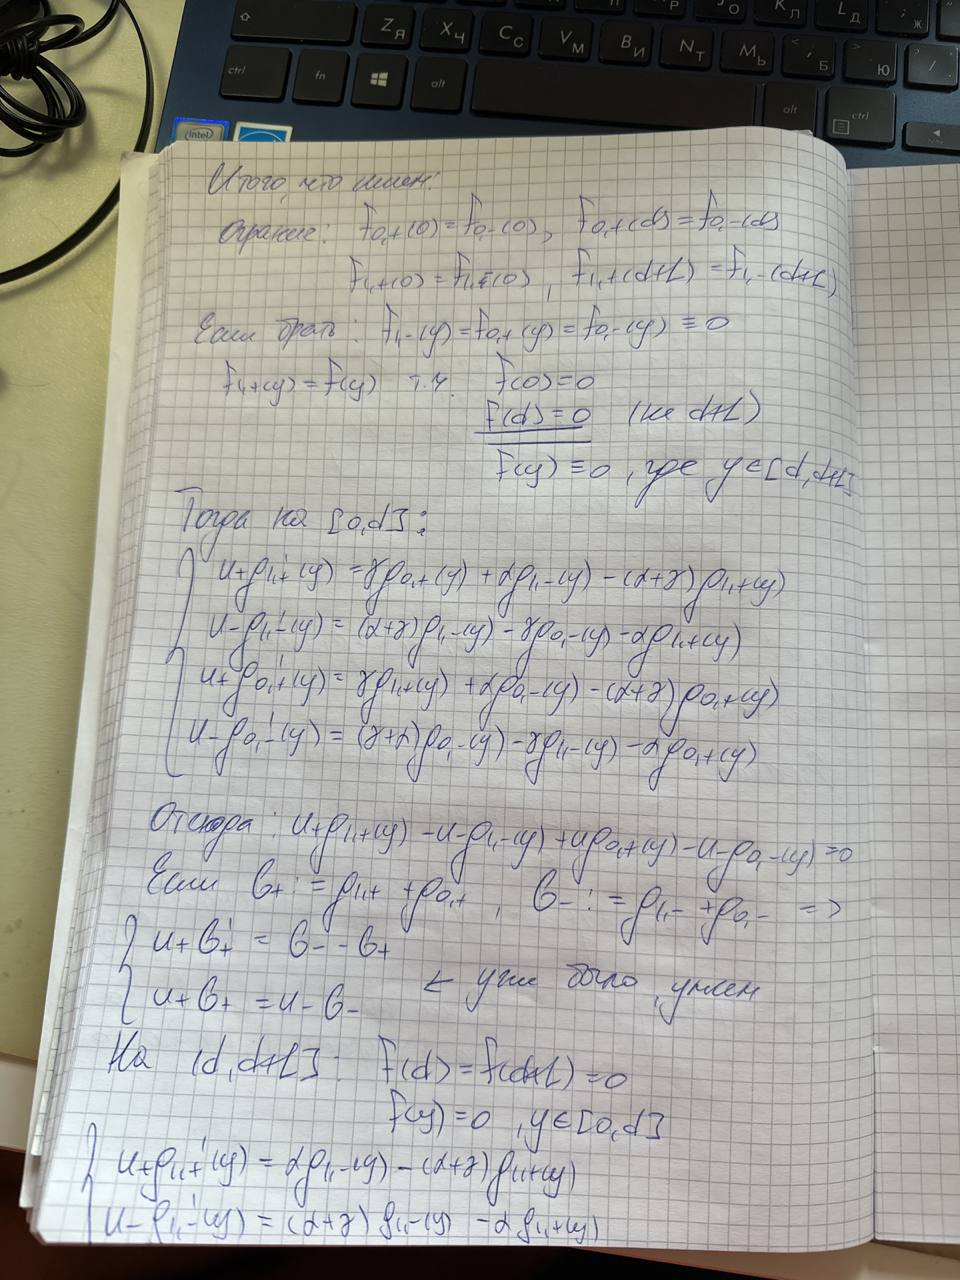 Z Я X Ч C С V М B И N Т M Ь < , Б > Ю / .
ctrl fn alt alt ctrl
intel
Итого, что имеем:
f₀,₊(0) = f₀,₋(0), f₀,₊(d) = f₀,₋(d)
f₁,₊(0) = f₁,₋(0), f₁,₊(d+L) = f₁,₋(d+L)
Если брать: f₁,₋(y) = f₀,₊(y) = f₀,₋(y) ≡ 0
f₁,₊(y) = f(y) т.ч. f(0) = 0
f(d) = 0 (не d+L)
f(y) ≡ 0, где y ∈ [d, d+L]
Тогда на [0,d]:
u₊ρ₁,₊'(y) = γρ₀,₊(y) + αρ₁,₋(y) − (α+γ)ρ₁,₊(y)
u₋ρ₁,₋'(y) = (α+γ)ρ₁,₋(y) − γρ₀,₋(y) − αρ₁,₊(y)
u₊ρ₀,₊'(y) = γρ₁,₊(y) + αρ₀,₋(y) − (α+γ)ρ₀,₊(y)
u₋ρ₀,₋'(y) = (γ+α)ρ₀,₋(y) − γρ₁,₋(y) − αρ₀,₊(y)
Отсюда: u₊ρ₁,₊(y) − u₋ρ₁,₋(y) + uρ₀,₊(y) − u₋ρ₀,₋(y) = 0
Если б₊ := ρ₁,₊ + ρ₀,₊, б₋ := ρ₁,₋ + ρ₀,₋ =>
u₊б₊' = б₋ − б₊
u₊б₊ = u₋б₋ ← уже было, умеем
На (d, d+L]: f(d) = f(d+L) = 0
f(y) = 0, y ∈ [0,d]
u₊ρ₁,₊'(y) = αρ₁,₋(y) − (α+γ)ρ₁,₊(y)
u₋ρ₁,₋'(y) = (α+γ)ρ₁,₋(y) − αρ₁,₊(y)